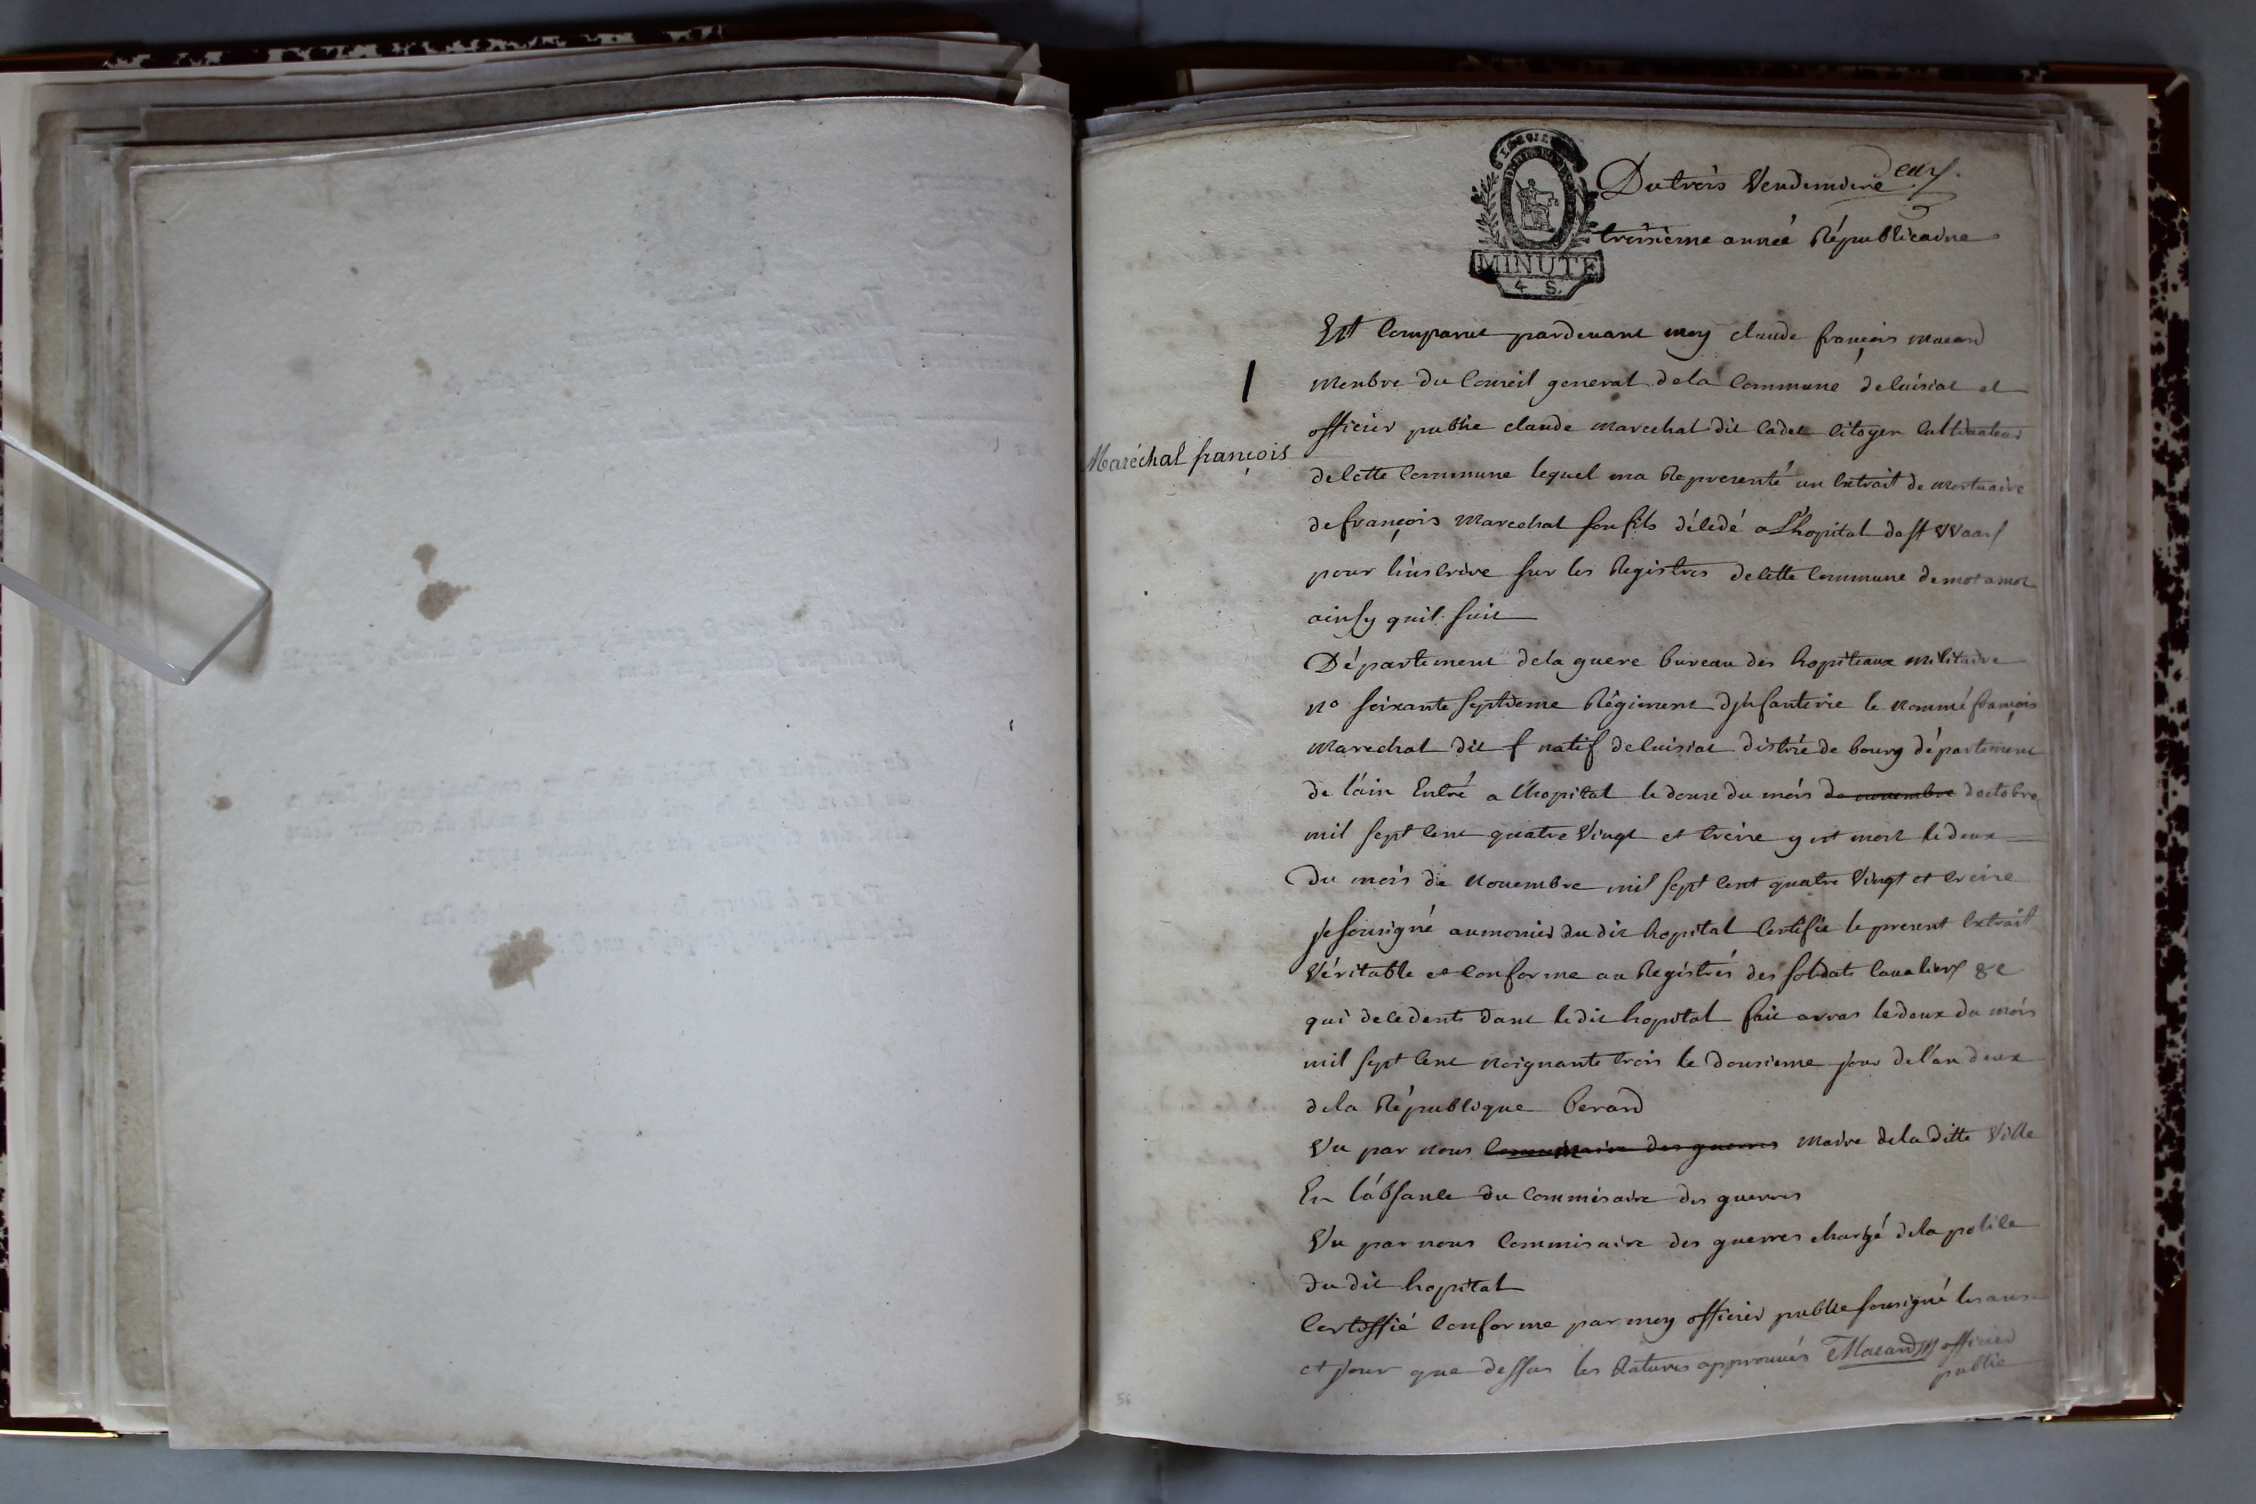 Dutrois Vendemiere
troisieme année Républicaine
MINUTE
4 S.
Est Comparut pardevant moy claude françois macard
Menbre du Conseil general dela Commune deluisiat et
officier public claude marechal dit Cadet Citoyen Cultivateur
Maréchal françois
delette Commune lequel ma Representé un Extrait de Mortuaire
de françois Marechal son fils décédé a L'hopital de st Waast
pour linscrire sur les Registres delette Commune demot amot
ainsy quil suit
Département dela guere bureau des hopiteaux militaire
no soixante septieme Régiment d'jnfanterie le nommé françois
Marechal dit f natif deluisiat distric de bourg département
de l'ain Entré a l'hopital le douze du mois de novembre doctobre
mil sept Cent quatre Vingt et treize y est mort le deux
Du mois de Novembre mil sept Cent quatre Vingt et treize
je sousigné aumonier du dit hopital Certifie le present Extrait
Véritable et Conforme au Registrés des soldats Cavaliers &c
qui decedent dans ledit hopital fait arras le deux du mois
mil sept Cent Noignante trois le Dousieme jour de l'an deux
dela République berard
Vu par nous Commissaire des guerres Maire dela ditte Ville
En l'absance du Commisaire des guerres
Vu par nous Commisaire des guerres chargé dela police
du dit hopital
Certiffié Conforme par moy officier public sousigné les an
et jour que dessus les Ratures approuvés Macard officier
public
56